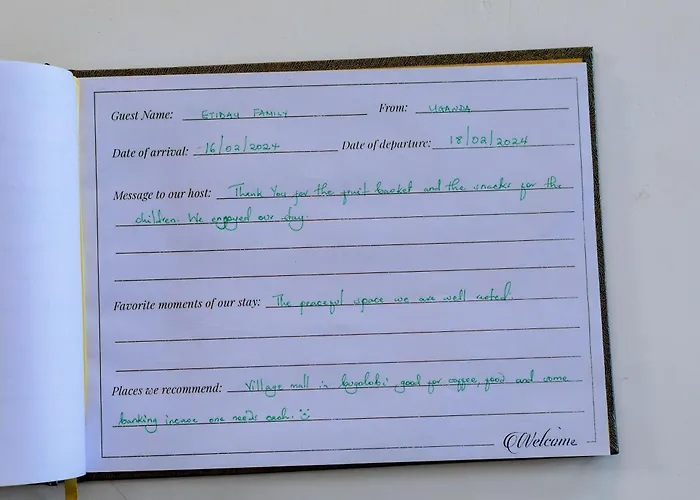 Guest Name: ETIDAU FAMILY From: UGANDA
Date of arrival: 16/02/2024 Date of departure: 18/02/2024
Message to our host: Thank You for the fruit basket and the snacks for the
children. We enjoyed our stay.
Favorite moments of our stay: The peaceful space we are well rested.
Places we recommend: Village mall in bugolobi good for coffee, food and some
banking incase one needs cash.
Welcome